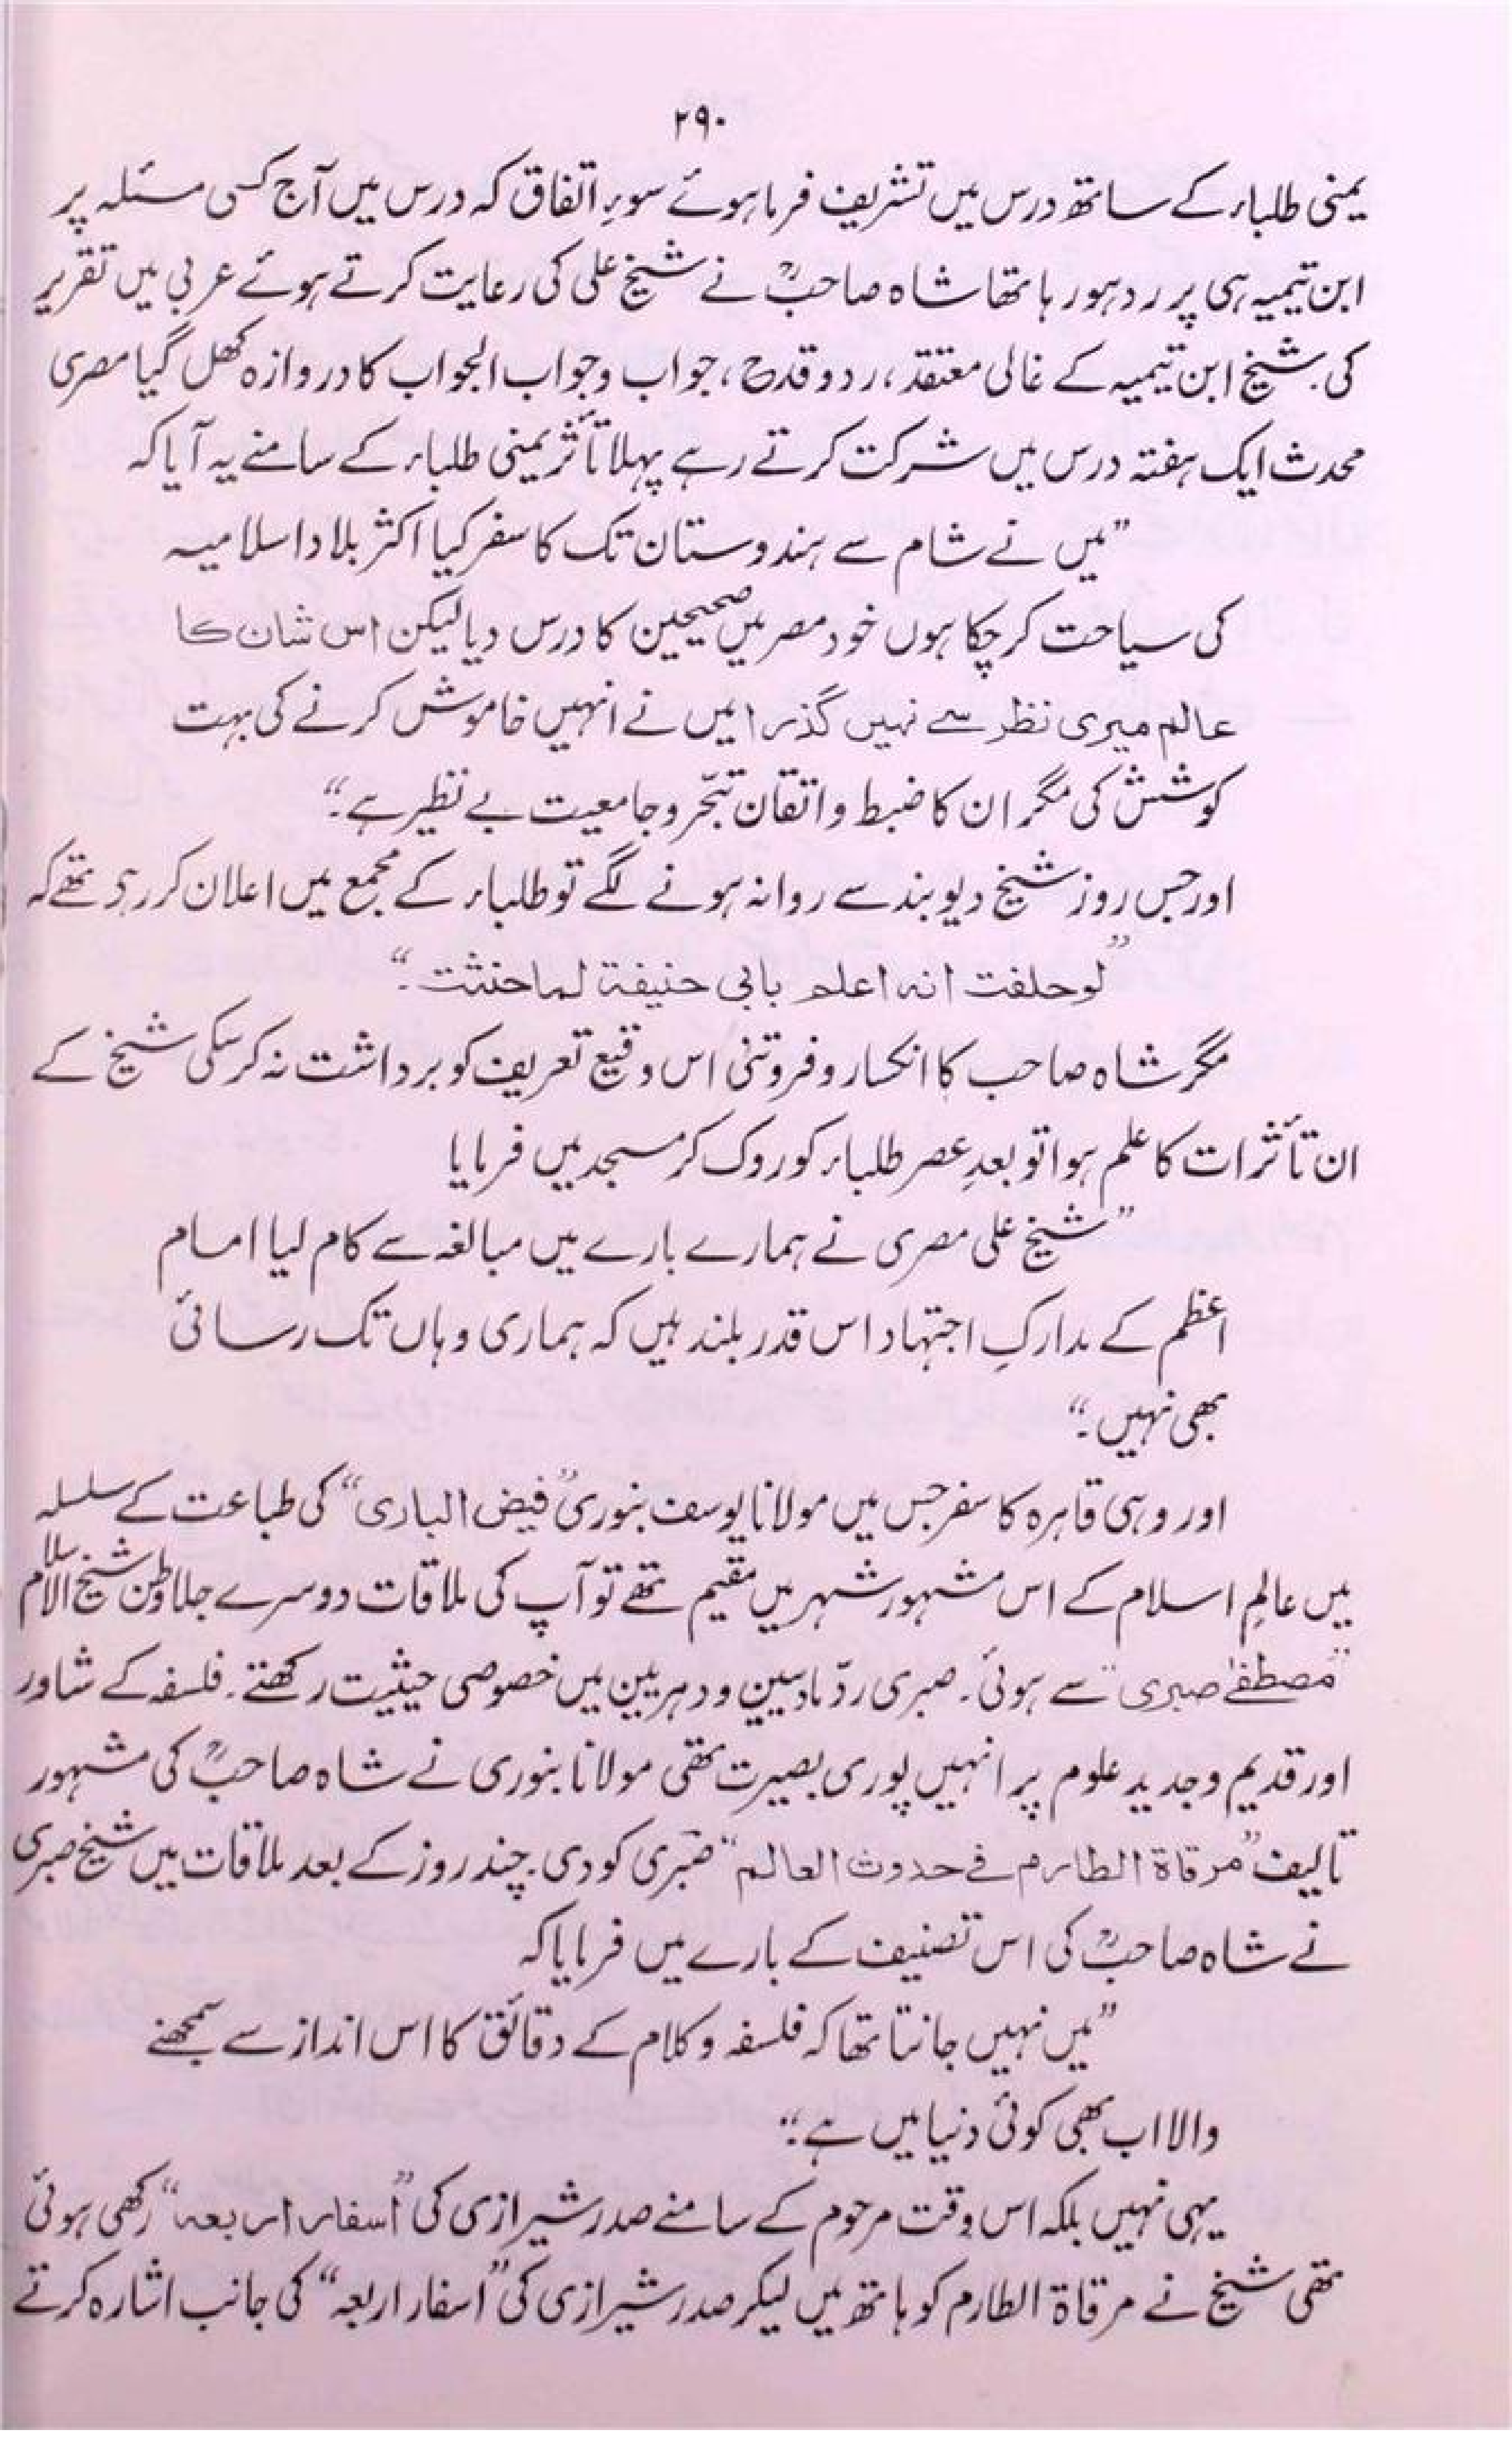 ۲۹۰
یمنی طلباء کے ساتھ درس میں تشریف فرما ہوئے سوءِ اتفاق کہ درس میں آج کسی مسئلہ پر
ابن تیمیہ ہی پر رد ہو رہا تھا شاہ صاحبؒ نے شیخ علی کی رعایت کرتے ہوئے عربی میں تقریر
کی۔ شیخ ابن تیمیہ کے غالی معتقد، رد و قدح، جواب و جواب الجواب کا دروازہ کھل گیا مصری
محدث ایک ہفتہ درس میں شرکت کرتے رہے پہلا تأثر یمنی طلباء کے سامنے یہ آیا کہ
”میں نے شام سے ہندوستان تک کا سفر کیا اکثر بلاد اسلامیہ
کی سیاحت کر چکا ہوں خود مصر میں صحیحین کا درس دیا لیکن اس شان کا
عالم میری نظر سے نہیں گذرا میں نے انہیں خاموش کرنے کی بہت
کوشش کی مگر ان کا ضبط و اتقان تبحّر و جامعیت بے نظیر ہے۔“
اور جس روز شیخ دیوبند سے روانہ ہونے لگے تو طلباء کے مجمع میں اعلان کر رہے تھے کہ
”لو حلفت انہ اعلم بابی حنیفۃ لما حنثت۔“
مگر شاہ صاحب کا انکسار و فروتنی اس وقیع تعریف کو برداشت نہ کر سکی شیخ کے
ان تأثرات کا علم ہوا تو بعدِ عصر طلباء کو روک کر مسجد میں فرمایا
”شیخ علی مصری نے ہمارے بارے میں مبالغہ سے کام لیا امام
اعظم کے مدارکِ اجتہاد اس قدر بلند ہیں کہ ہماری وہاں تک رسائی
بھی نہیں۔“
اور وہی قاہرہ کا سفر جس میں مولانا یوسف بنوری ”فیض الباری“ کی طباعت کے سلسلہ
میں عالمِ اسلام کے اس مشہور شہر میں مقیم تھے تو آپ کی ملاقات دوسرے جلاوطن شیخ الاسلام
”مصطفےٰ صبری“ سے ہوئی۔ صبری ردّ مادیین و دہریین میں خصوصی حیثیت رکھتے۔ فلسفہ کے شاور
اور قدیم و جدید علوم پر انہیں پوری بصیرت تھی مولانا بنوری نے شاہ صاحبؒ کی مشہور
تالیف ”مرقاۃ الطارم فے حدوث العالم“ صبری کو دی۔ چند روز کے بعد ملاقات میں شیخ صبری
نے شاہ صاحبؒ کی اس تصنیف کے بارے میں فرمایا کہ
”میں نہیں جانتا تھا کہ فلسفہ و کلام کے دقائق کا اس انداز سے سمجھنے
والا اب بھی کوئی دنیا میں ہے۔“
یہی نہیں بلکہ اس وقت مرحوم کے سامنے صدر شیرازی کی ”اسفار اربعہ“ رکھی ہوئی
تھی شیخ نے مرقاۃ الطارم کو ہاتھ میں لیکر صدر شیرازی کی ”اسفار اربعہ“ کی جانب اشارہ کرتے